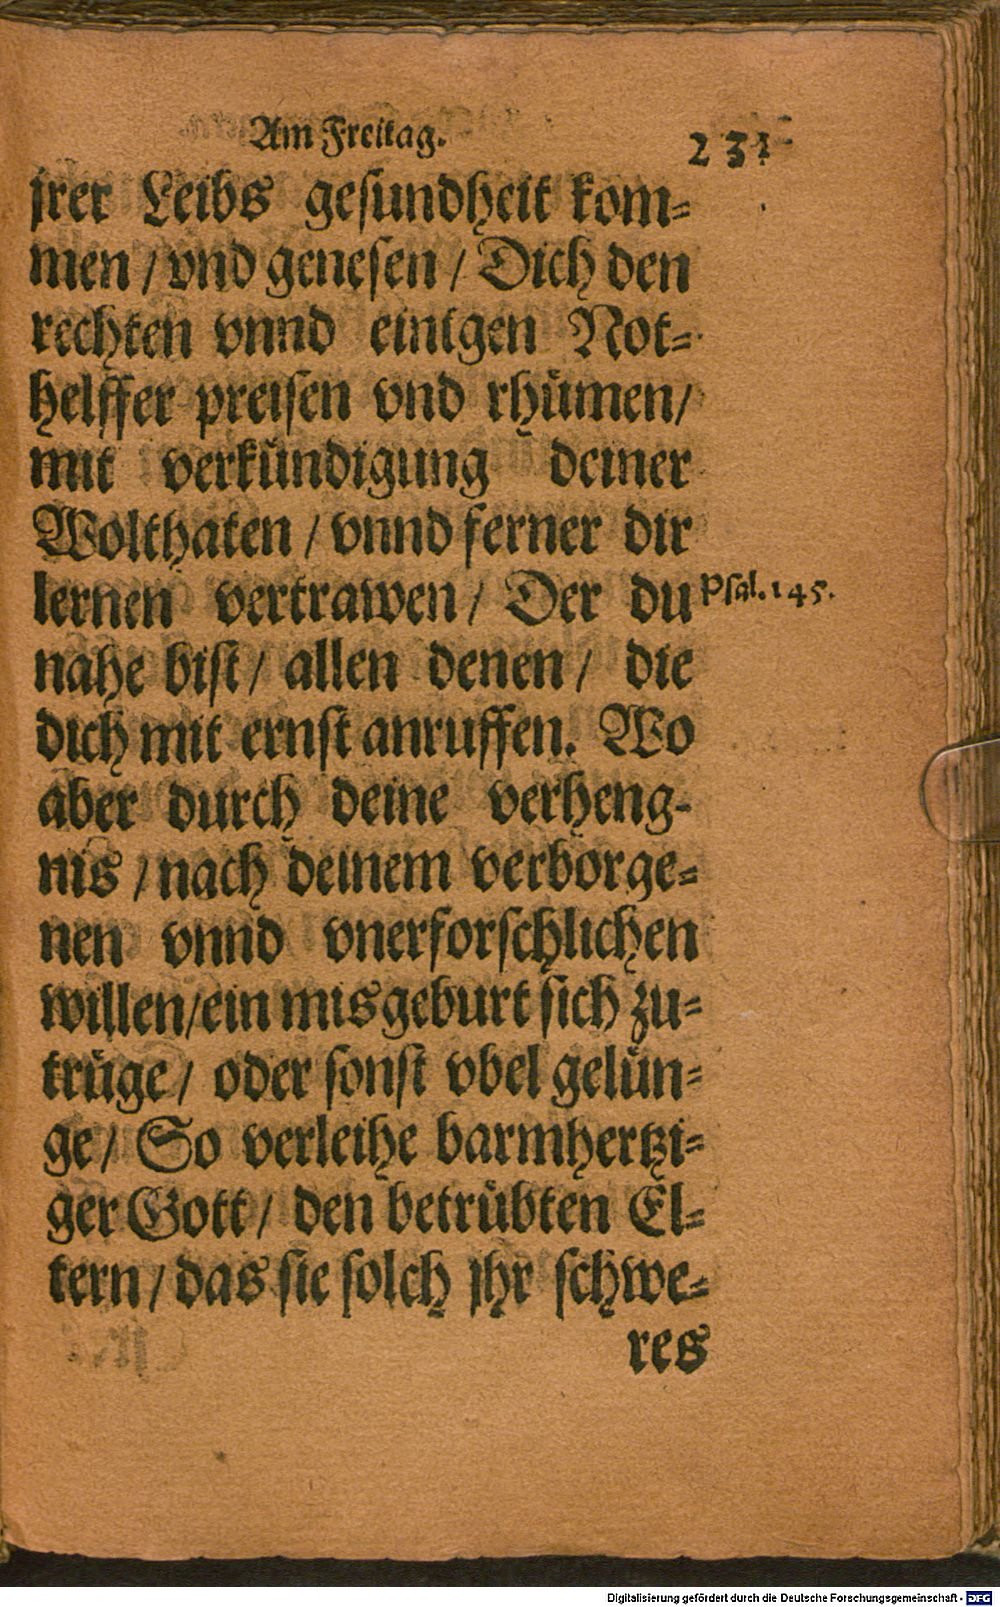 Am Freitag. 231
jrer Leibs gesundheit kom⸗
men / vnd genesen / Dich den
rechten vnnd einigen Not⸗
helffer preisen vnd rhümen/
mit verkündigung deiner
Wolthaten / vnnd ferner dir
lernen vertrawen / Der du Psal. 145.
nahe bist / allen denen / die
dich mit ernst anruffen. Wo
aber durch deine verheng⸗
nis / nach deinem verborge⸗
nen vnnd vnerforschlichen
willen/ein misgeburt sich zu⸗
trüge / oder sonst vbel gelün⸗
ge / So verleihe barmhertzi⸗
ger Gott / den betrübten El⸗
tern / das sie solch jhr schwe⸗
res
Digitalisierung gefördert durch die Deutsche Forschungsgemeinschaft - DFG